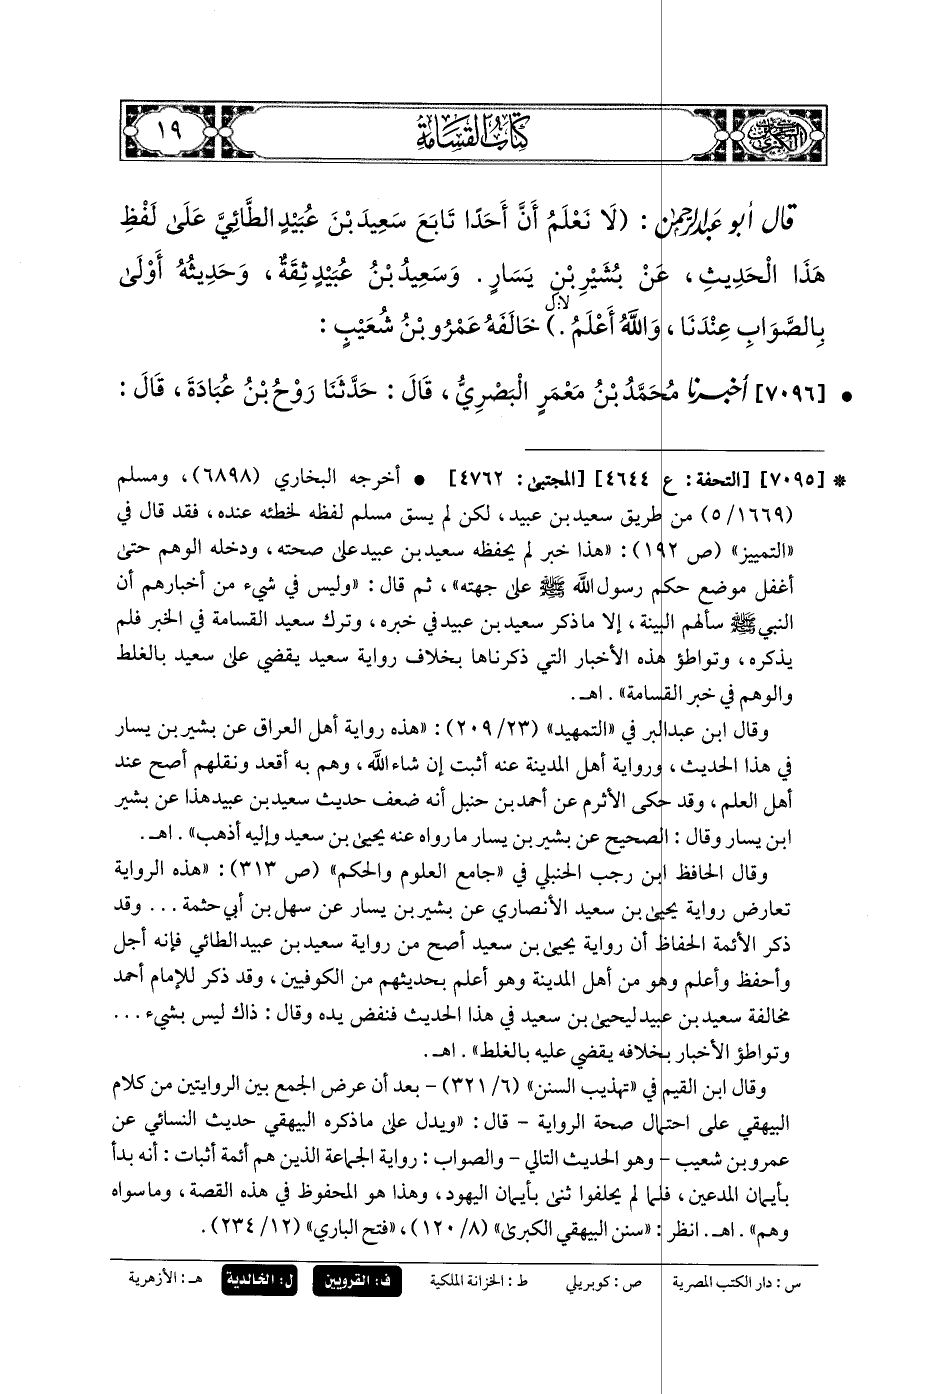 كتاب القسامة
١٩
قال أبو عبدالرحمن : (لَا نَعْلَمُ أَنَّ أَحَدًا تَابَعَ سَعِيدَ بْنَ عُبَيْدٍ الطَّائِيَّ عَلَىٰ لَفْظِ
هَذَا الْحَدِيثِ ، عَنْ بُشَيْرِ بْنِ يَسَارٍ . وَسَعِيدُ بْنُ عُبَيْدٍ ثِقَةٌ ، وَحَدِيثُهُ أَوْلَىٰ
بِالصَّوَابِ عِنْدَنَا ، وَاللَّهُ أَعْلَمُ .) خَالَفَهُ عَمْرُو بْنُ شُعَيْبٍ :
• [٧٠٩٦] أخبرنا مُحَمَّدُ بْنُ مَعْمَرٍ الْبَصْرِيُّ ، قَالَ : حَدَّثَنَا رَوْحُ بْنُ عُبَادَةَ ، قَالَ :
* [٧٠٩٥] [التحفة : ع ٤٦٤٤] [المجتبىٰ : ٤٧٦٢] • أخرجه البخاري (٦٨٩٨) ، ومسلم
(٥/١٦٦٩) من طريق سعيد بن عبيد ، لكن لم يسق مسلم لفظه لخطئه عنده ، فقد قال في
«التمييز» (ص ١٩٢) : «هذا خبر لم يحفظه سعيد بن عبيد على صحته ، ودخله الوهم حتىٰ
أغفل موضع حكم رسول اللَّه ﷺ على جهته» ، ثم قال : «وليس في شيء من أخبارهم أن
النبي ﷺ سألهم البينة ، إلا ما ذكر سعيد بن عبيد في خبره ، وترك سعيد القسامة في الخبر فلم
يذكره ، وتواطؤ هذه الأخبار التي ذكرناها بخلاف رواية سعيد يقضي على سعيد بالغلط
والوهم في خبر القسامة» . اهـ .
وقال ابن عبدالبر في «التمهيد» (٢٣/ ٢٠٩) : «هذه رواية أهل العراق عن بشير بن يسار
في هذا الحديث ، ورواية أهل المدينة عنه أثبت إن شاء اللَّه ، وهم به أقعد ونقلهم أصح عند
أهل العلم ، وقد حكى الأثرم عن أحمد بن حنبل أنه ضعف حديث سعيد بن عبيد هذا عن بشير
ابن يسار وقال : الصحيح عن بشير بن يسار ما رواه عنه يحيىٰ بن سعيد وإليه أذهب» . اهـ .
وقال الحافظ ابن رجب الحنبلي في «جامع العلوم والحكم» (ص ٣١٣) : «هذه الرواية
تعارض رواية يحيىٰ بن سعيد الأنصاري عن بشير بن يسار عن سهل بن أبي حثمة . . . وقد
ذكر الأئمة الحفاظ أن رواية يحيىٰ بن سعيد أصح من رواية سعيد بن عبيد الطائي فإنه أجل
وأحفظ وأعلم وهو من أهل المدينة وهو أعلم بحديثهم من الكوفيين ، وقد ذكر للإمام أحمد
مخالفة سعيد بن عبيد ليحيىٰ بن سعيد في هذا الحديث فنفض يده وقال : ذاك ليس بشيء . . .
وتواطؤ الأخبار بخلافه يقضي عليه بالغلط» . اهـ .
وقال ابن القيم في «تهذيب السنن» (٦/ ٣٢١) - بعد أن عرض الجمع بين الروايتين من كلام
البيهقي على احتمال صحة الرواية - قال : «ويدل على ما ذكره البيهقي حديث النسائي عن
عمرو بن شعيب - وهو الحديث التالي - والصواب : رواية الجماعة الذين هم أئمة أثبات : أنه بدأ
بأيمان المدعين ، فلما لم يحلفوا ثنىٰ بأيمان اليهود ، وهذا هو المحفوظ في هذه القصة ، وما سواه
وهم» . اهـ . انظر : «سنن البيهقي الكبرىٰ» (٨/ ١٢٠) ، «فتح الباري» (١٢/ ٢٣٤) .
س : دار الكتب المصرية ص : كوبريلي ط : الخزانة الملكية ف : القرويين ل : الخالدية هـ : الأزهرية